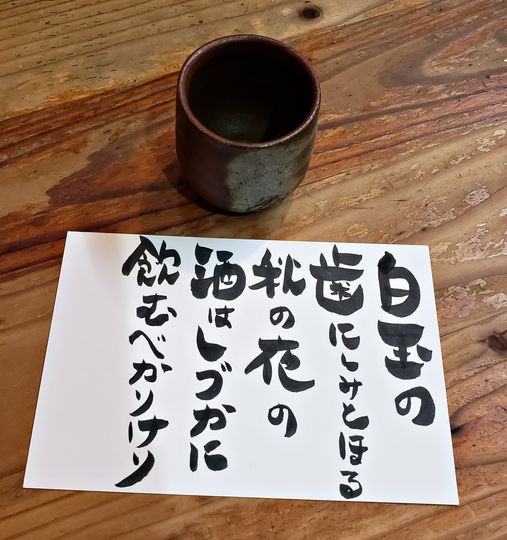 白玉の
歯にしみとほる
秋の夜の
酒はしづかに
飲むべかりけり